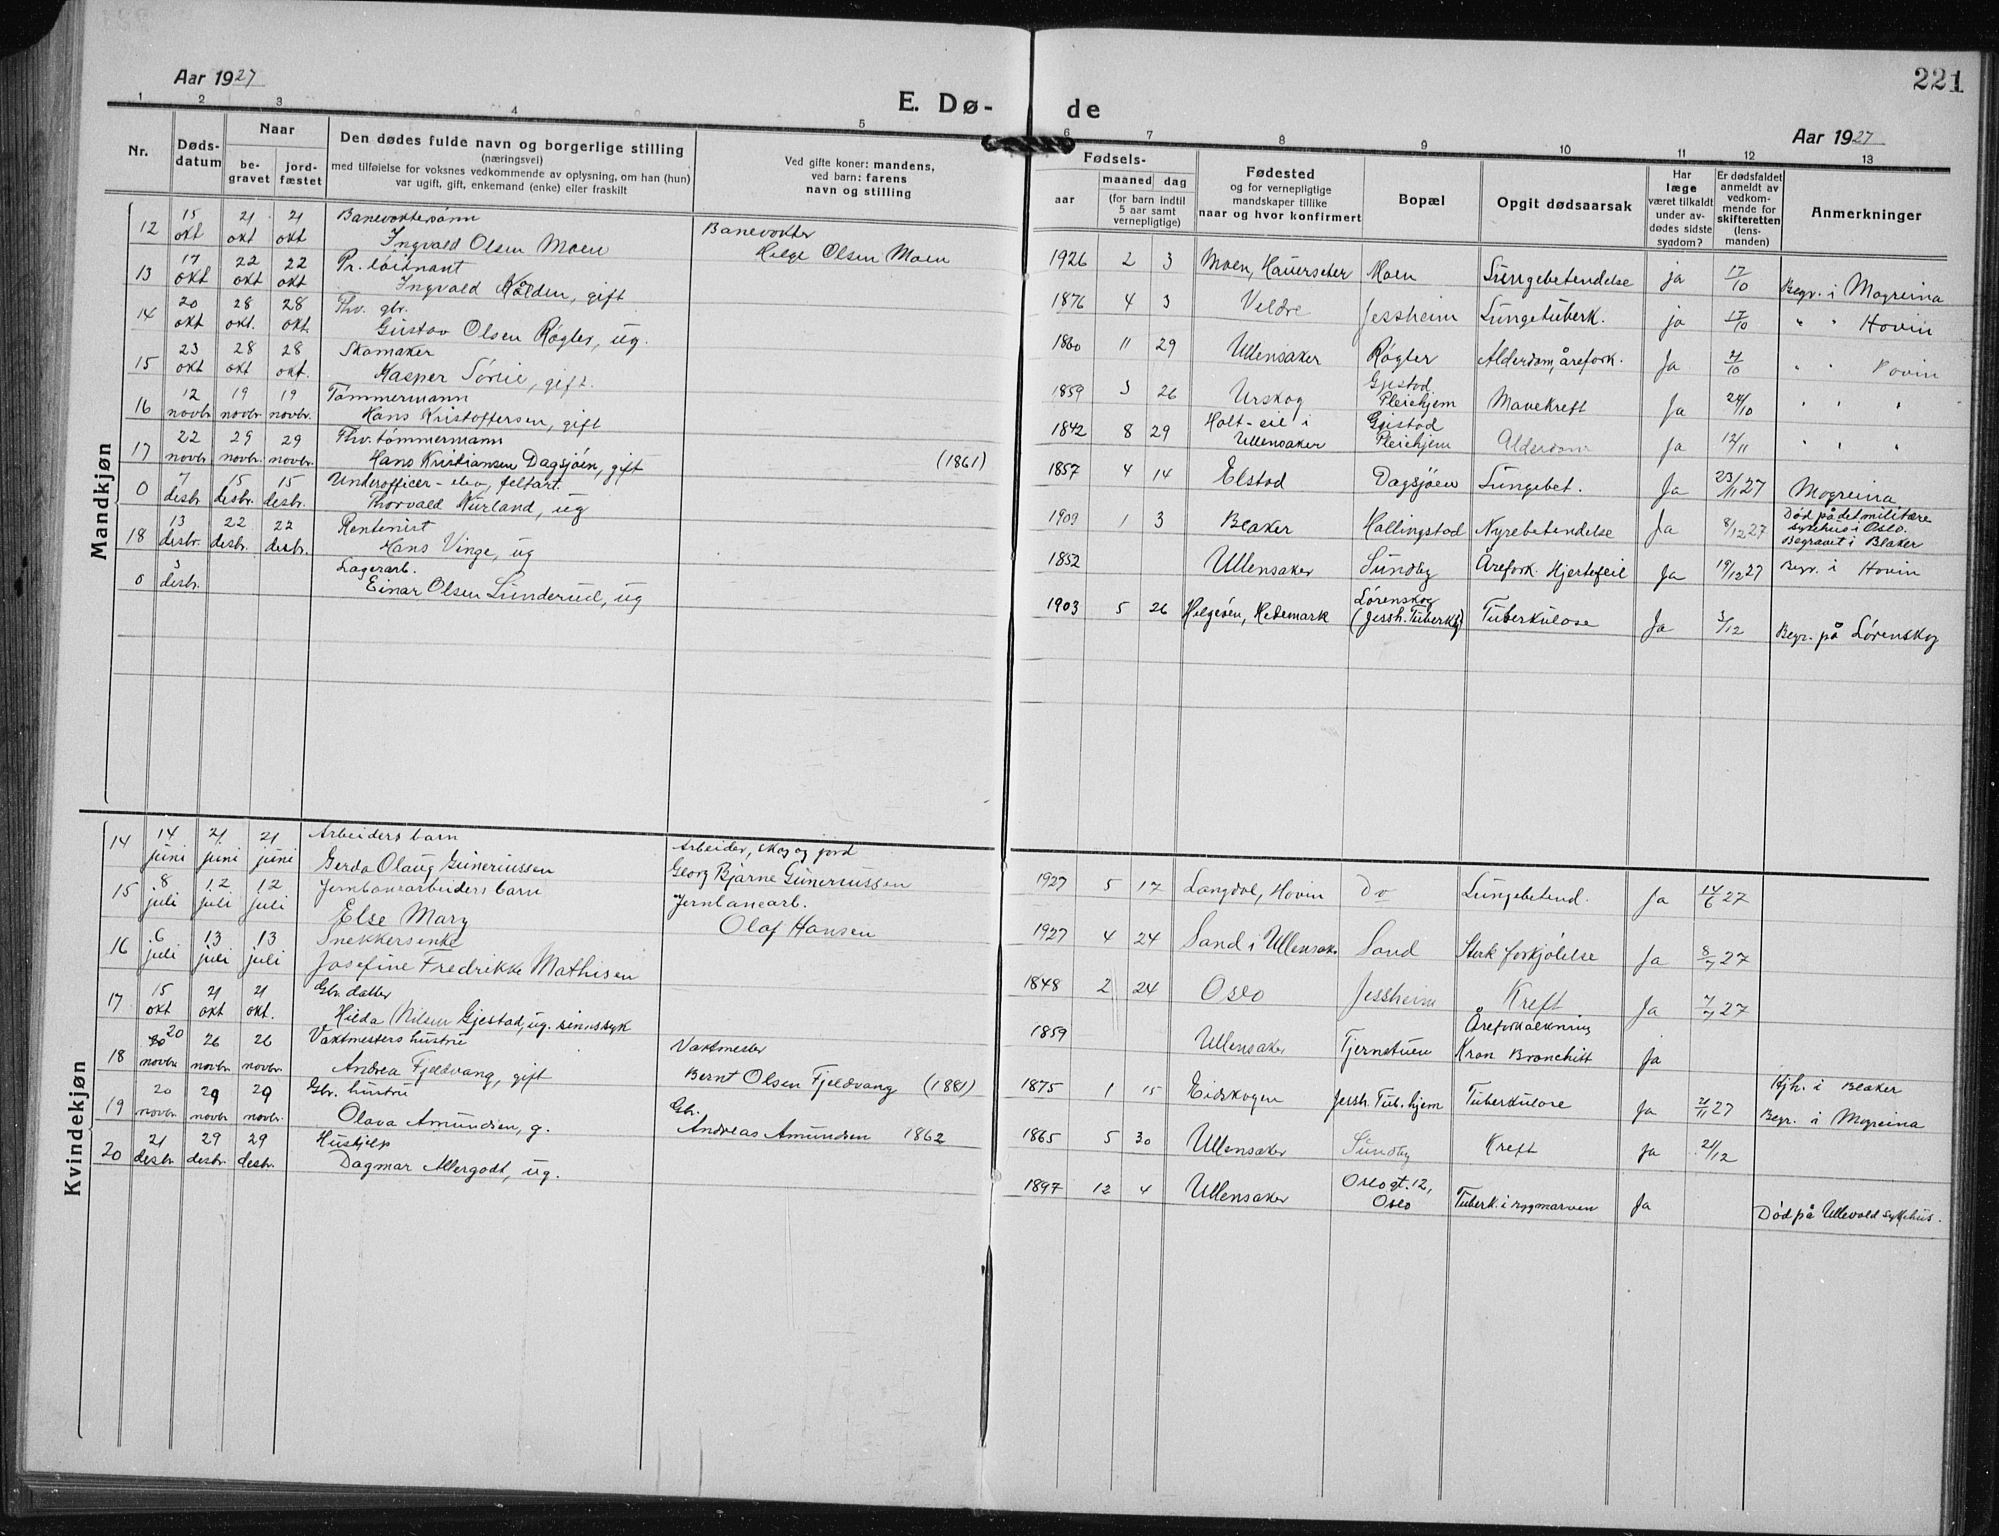 Aar 1927
221
E. Dø-
de
Aar 1927
1 2 3 4 5 6 7 8 9 10 11 12 13
Nr.
Døds-
datum
Naar
be-
gravet
jord-
fæstet
Den dødes fulde navn og borgerlige stilling
(næringsvei)
med tilføielse for voksnes vedkommende av oplysning, om han (hun)
var ugift, gift, enkemand (enke) eller fraskilt
Ved gifte koner: mandens,
ved barn: farens
navn og stilling
Fødsels-
aar
maaned dag
(for barn indtil
5 aar samt
vernepligtige)
Fødested
og for vernepligtige
mandskaper tillike
naar og hvor konfirmert
Bopæl
Opgit dødsaarsak
Har
læge
været tilkaldt
under av-
dødes sidste
sygdom?
Er dødsfaldet
anmeldt av
vedkom-
mende for
skifteretten
(lens-
manden)
Anmerkninger
Mandkjøn
12 15 okt 21 okt 21 okt Banevoktersønn
Ingvald Olsen Moen
Banevokter
Helge Olsen Moen
1926 2 3 Moen, Hauerseter Moen Lungebetendelse ja 17/10 Begr. i Mogreina
13 17 okt 22 okt 22 okt Pr. løitnant
Ingvald Kølden, gift
1876 4 3 Veldre Jessheim Lungetuberk. ja 17/10 " " Hovin
14 20 okt 28 okt. 28 okt. Fhv. gbr.
Gustav Olsen Røgler, ug.
1860 11 29 Ullensaker Røgler Alderdom, årefork. Ja 21/10 " " Hovin
15 23 okt 28 okt 28 okt. Skomaker
Kasper Sørlie, gift.
1859 3 26 Urskog Gjestad
Pleiehjem Mavekreft Ja 24/10 " " "
16 12 novbr 19 novbr 19 novbr. Tømmermann
Hans Kristoffersen, gift
1842 8 29 Holt-eie i
Ullensaker Gjestad
Pleiehjem Alderdom Ja 12/11 " " "
17 22 novbr 29 novbr. 29 novbr. Fhv. tømmermann
Hans Kristiansen Dagsjøen, gift (1861)
1857 4 14 Elstad Dagsjøen Lungebet. Ja 23/11 27 Mogreina
0 7 desbr 15 desbr. 15 desbr. Underofficer-elev, feltart.
Thorvald Kurland, ug
1909 1 3 Blaker Hallingstad Nyrebetendelse Ja 8/12 27 Død på det militære
sykehus i Oslo.
Begravet i Blaker
18 13 desbr. 22 desbr. 22 desbr. Rentenist
Hans Vinge, ug
1852 Ullensaker Sundby Årefork. Hjertefeil Ja 19/12 27 Begr. i Hovin
0 3 desbr. Lagerarb.
Einar Olsen Lunderud, ug
1903 5 26 Helgøen, Hedemark Lørenskog
(Jessh. Tuberkhj) Tuberkulose Ja 3/12 Begr. på Lørenskog
Kvindekjøn
14 14 juni 21. juni 21 juni Arbeiders barn
Gerda Olaug Guneriussen
Arbeider, skog og jord
Georg Bjarne Guneriussen
1927 5 17 Langdal, Hovin Do Lungebetend. Ja 14/6 27
15 8 juli 12 juli 12 juli Jernbanearbeiders barn
Else Mary
Jernbanearb.
Olaf Hansen
1927 4 24 Sand i Ullensaker Sand Sterk forkjølelse Ja 8/7 27
16 6 juli 13 juli 13 juli Snekkersenke
Josefine Fredrikke Mathisen
1848 2 24 Oslo Jessheim Kreft Ja 7/7 27
17 15 okt 21 okt 21 okt. Gbr. datter
Hilda Nilsen Gjestad, ug. sinnssyk
1859 Ullensaker Tjernstuen Åreforkalkning
Kron Bronchitt ja
18 20 novbr. 26 novbr. 26 novbr. Vaktmesters hustru
Andrea Fjeldvang, gift
Vaktmester
Bernt Olsen Fjeldvang (1881)
1875 1 15 Eidskogen Jessh. Tub. hjem Tuberkulose Ja 21/11 27 Hjh. i Blaker
Begr. i Mogreina
19 20 novbr. 29 novbr 29 novbr. Gbr. hustru
Olava Amundsen, g.
Gbr.
Andreas Amundsen 1862
1865 5 30 Ullensaker Sundby Kreft Ja 21/12
20 21 desbr. 29 desbr. 29 desbr. Hushjelp
Dagmar Allergodt, ug.
1897 12 4 Ullensaker Oslogt. 12,
Oslo Tuberk. i rygmarven Ja Død på Ullevold sykehus.